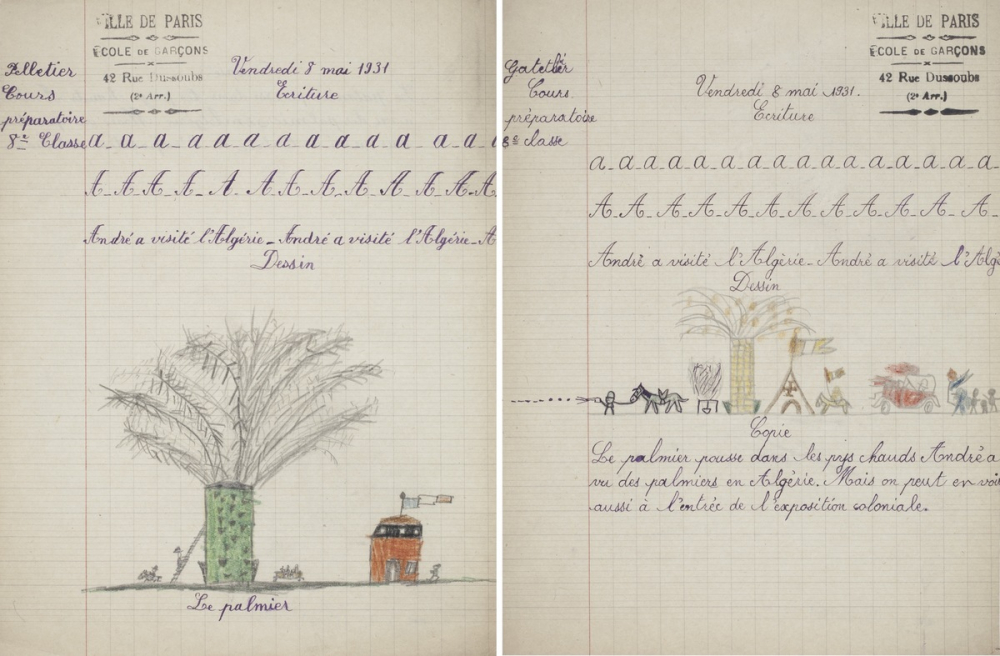 VILLE DE PARIS
ÉCOLE DE GARÇONS
42 Rue Dussoubs
(2e Arr.)
Pelletier
Cours
préparatoire
8e Classe
Vendredi 8 mai 1931
Ecriture
a a a a a a a a a a a a a
A A A A A A A A A A A A
André a visité l'Algérie - André a visité l'Algérie - A
Dessin
Le palmier
VILLE DE PARIS
ÉCOLE DE GARÇONS
42 Rue Dussoubs
(2e Arr.)
Cours
préparatoire
8e classe
Vendredi 8 mai 1931.
Ecriture
a a a a a a a a a a a a a
A A A A A A A A A A A
André a visité l'Algérie - André a visité l'Algé
Dessin
Copie
Le palmier pousse dans les pays chauds André a
vu des palmiers en Algérie. Mais on peut en voir
aussi à l'entrée de l'exposition coloniale.